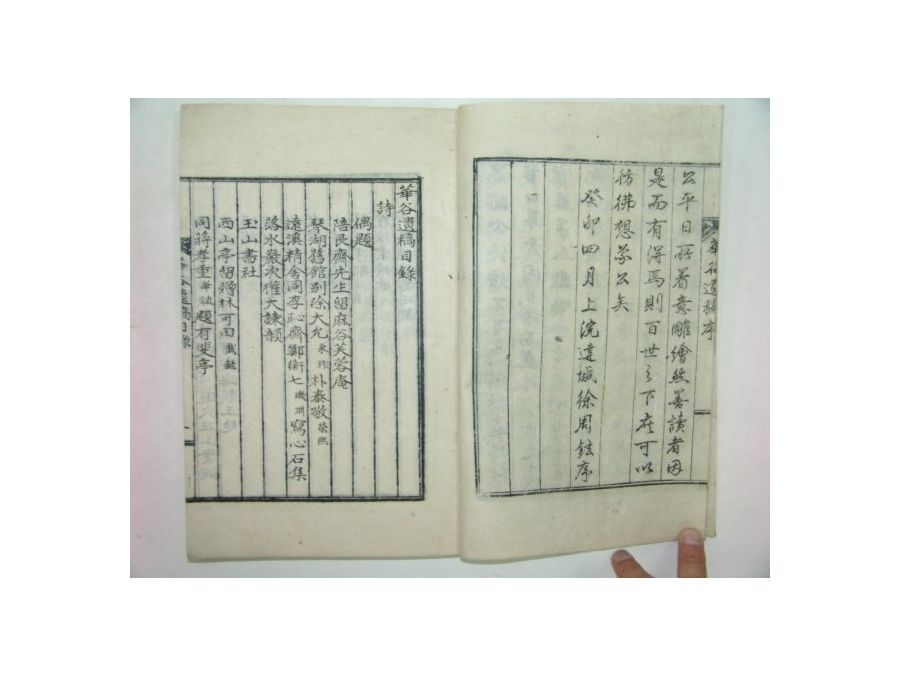 公平日所著意雕繪然善讀者因
是而有得焉則百世之下庶可以
彷彿想象公矣
癸卯四月上浣達城徐周鉉序
華谷遺稿序
華谷遺稿目錄
詩
偶題
陪艮齋先生留麻谷芙蓉庵
琴湖舊館別徐大允 朴泰敬
遠溪精舍同李恥齋鄭衡七 寫心石集
落水巖次權大諫韻
玉山書社
西山亭留贈林可回
同蔣孝重 題有斐亭
華谷遺稿目錄